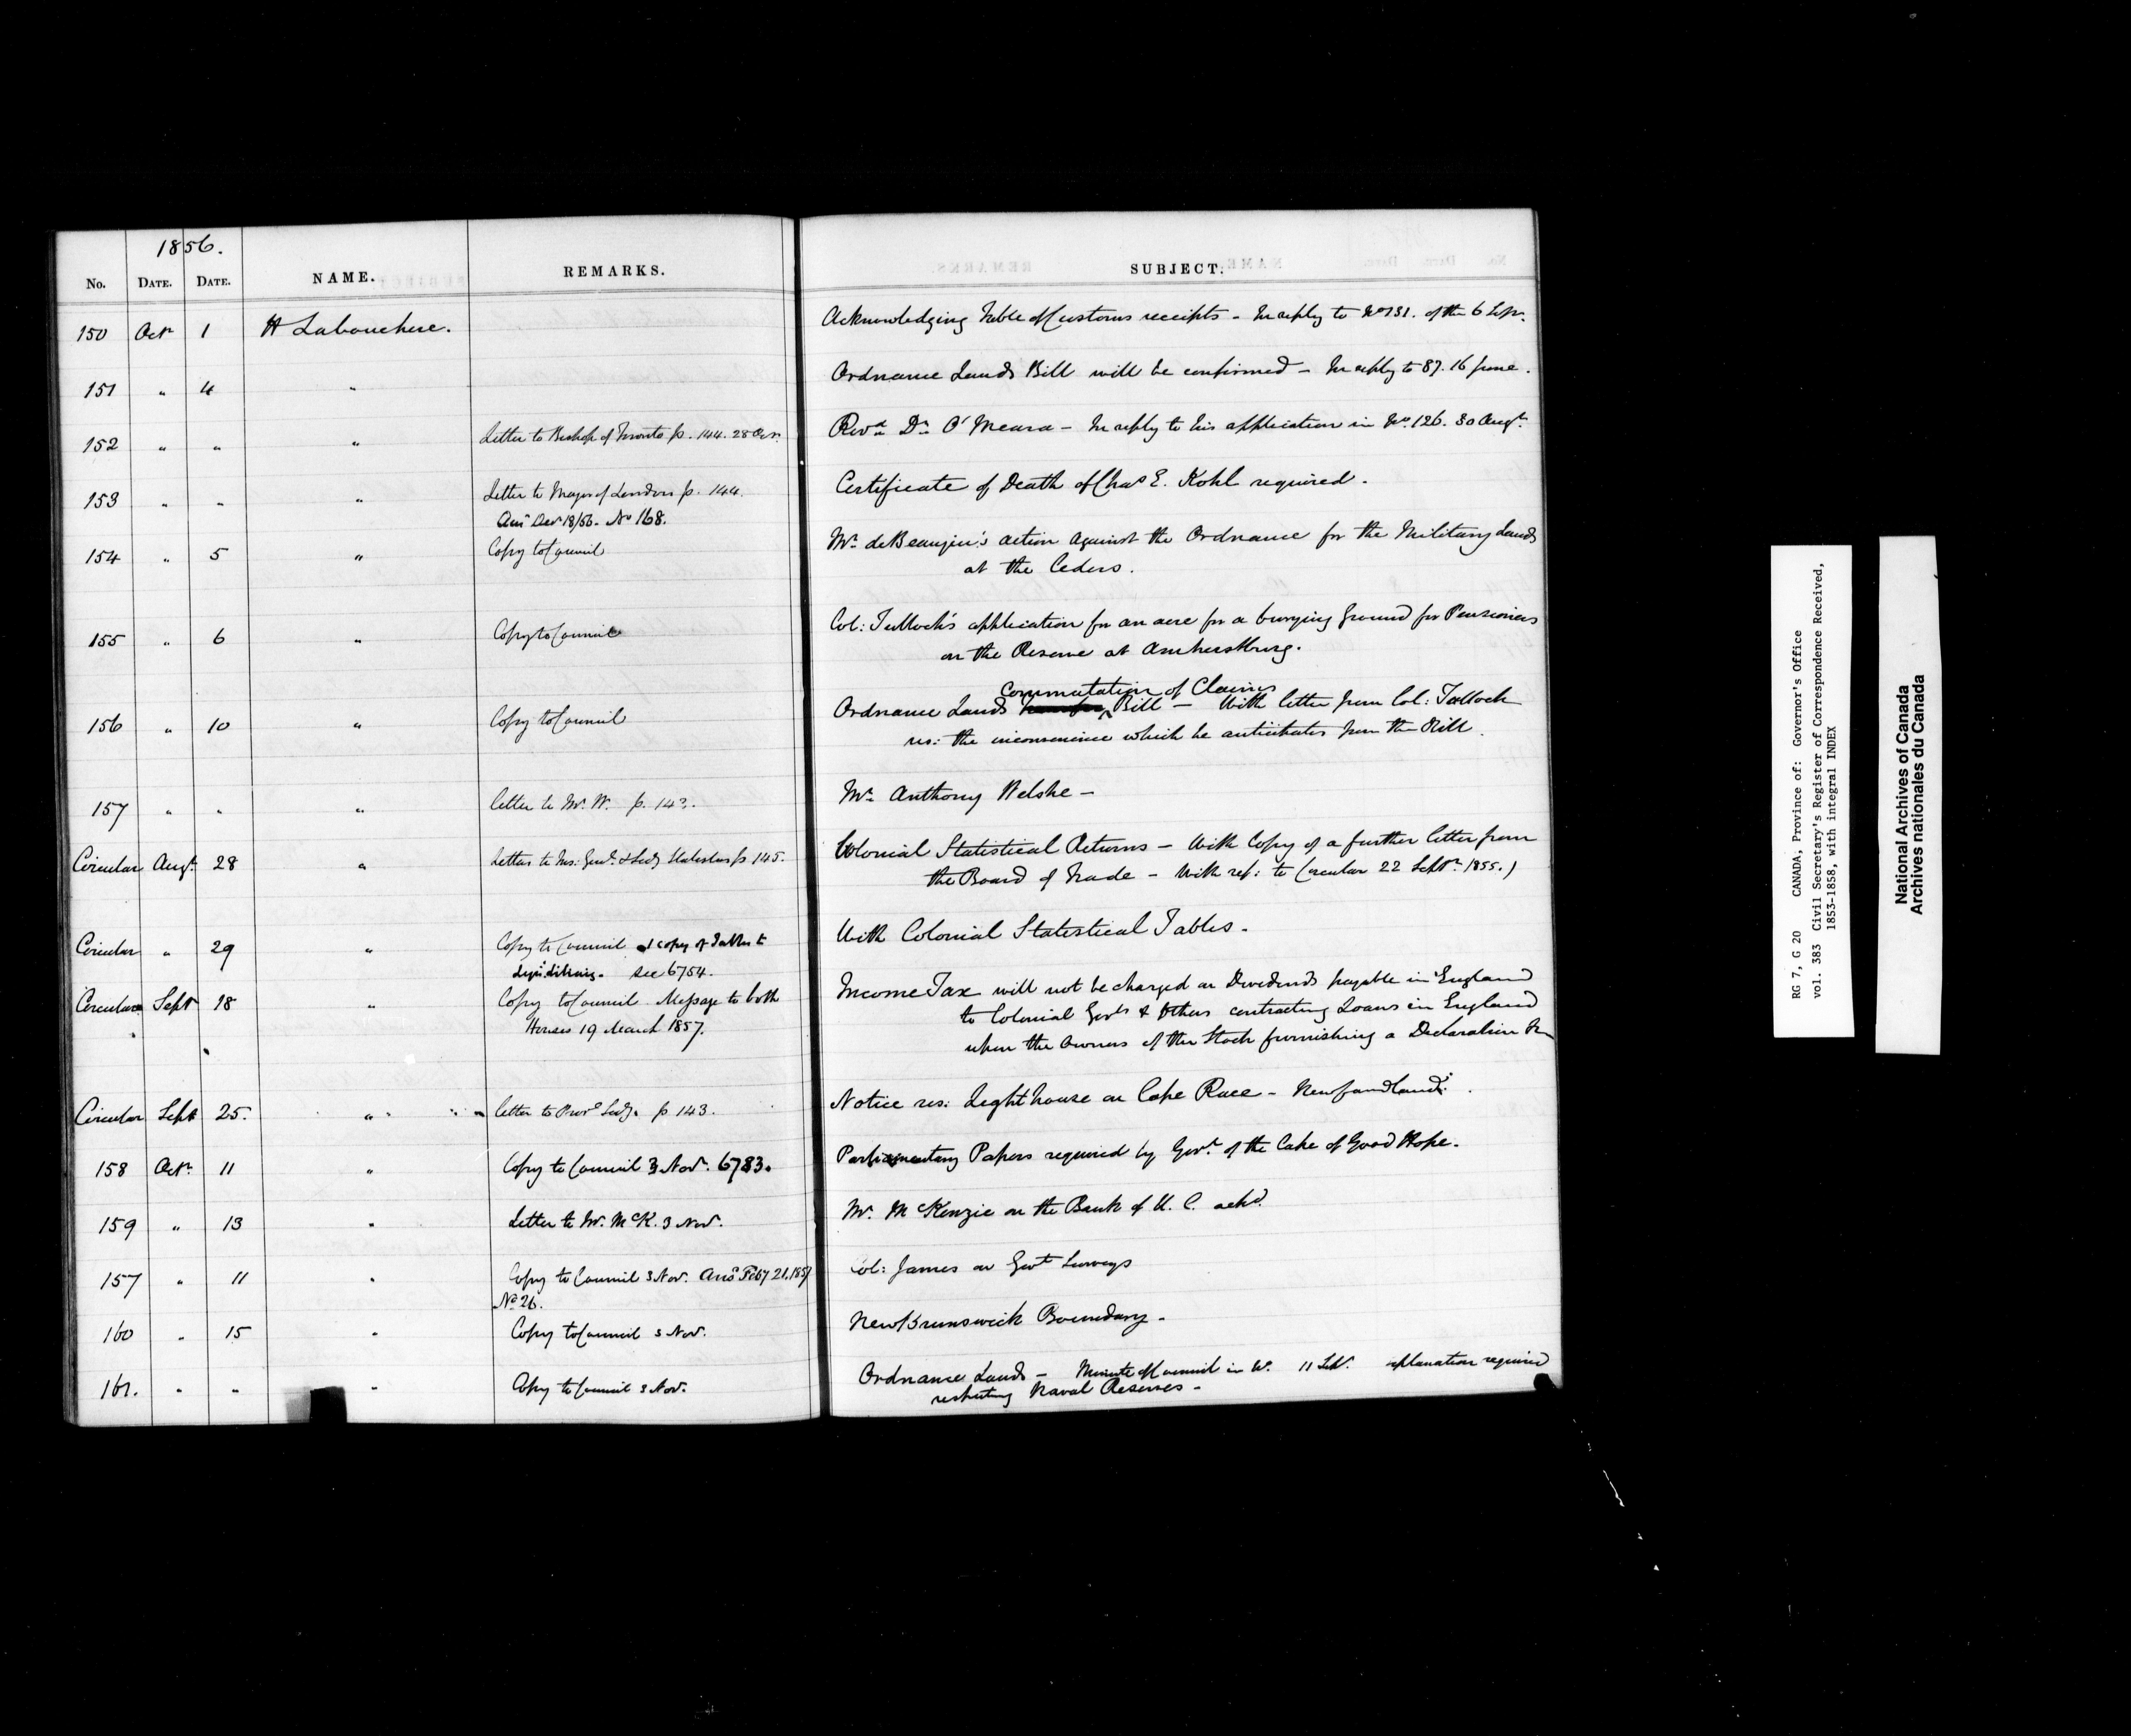 1856.
No. DATE. DATE. NAME. REMARKS. SUBJECT.
150 Octr 1 H Labouchere. Acknowledging Table of Customs receipts - In reply to No 131. of the 6 Sepr.
151 " 4 " Ordnance Lands Bill will be confirmed - In reply to 87. 16 June.
152 " " " Letter to Bishop of Toronto p. 144. 28 Octr. Revd Dr O'Meara - In reply to his application in No. 126. 30 Augt.
153 " " " Letter to Mayor of London p. 144. Certificate of Death of Chas E. Kohl required.
Ansd Decr 18/56. No 168.
154 " 5 " Copy to Council Mr. deBeaujeu's action against the Ordnance for the Military Lands
at the Ceders.
155 " 6 " Copy to Council Col: Tulloch's application for an acre for a burying ground for Pensioners
on the Reserve at Amherstburg.
Commutation of Claims
156 " 10 " Copy to Council Ordnance Lands Bill - With letter from Col: Tulloch
res: the inconvenience which he anticipates from the Bill.
157 " " " Letter to Mr. W. p. 143. Mr. Anthony Welshe -
Circular Augt. 28 " Letter to Ins: Genl. & Secy Statistics p 145. Colonial Statistical Returns - With Copy of a further letter from
the Board of Trade - With ref: to Circular 22 Septr. 1855.)
Circular " 29 " Copy to Council & copy of Tables to With Colonial Statistical Tables.
see 6754.
Circular Sept 18 " Copy to Council. Message to both Income Tax will not be charged on Dividends payable in England
Houses 19 March 1857. to Colonial Govts & Others contracting Loans in England
upon the Owners of the Stock furnishing a Declaration &c
Circular Sept 25. " Letter to Provl Secy. p 143. Notice res: Light house on Cape Race - Newfoundland.
158 Octr. 11 " Copy to Council 3 Nov. 6783. Parliamentary Papers required by Govt. of the Cape of Good Hope.
159 " 13 " Letter to Mr. McK. 3 Nov. Mr. McKenzie on the Bank of U. C. ackd.
157 " 11 " Copy to Council 3 Nov. Ansd Feby 21, 1857 Col: James on Govt Surveys
No 26.
160 " 15 " Copy to Council 3 Nov. New Brunswick Boundary -
161. " " " Copy to Council 3 Nov. Ordnance Lands - Minute of Council in No. 11 explanation required
respecting Naval Reserves -
RG 7, G 20 CANADA, Province of: Governor's Office
vol. 383 Civil Secretary's Register of Correspondence Received,
1853-1858, with integral INDEX
National Archives of Canada
Archives nationales du Canada